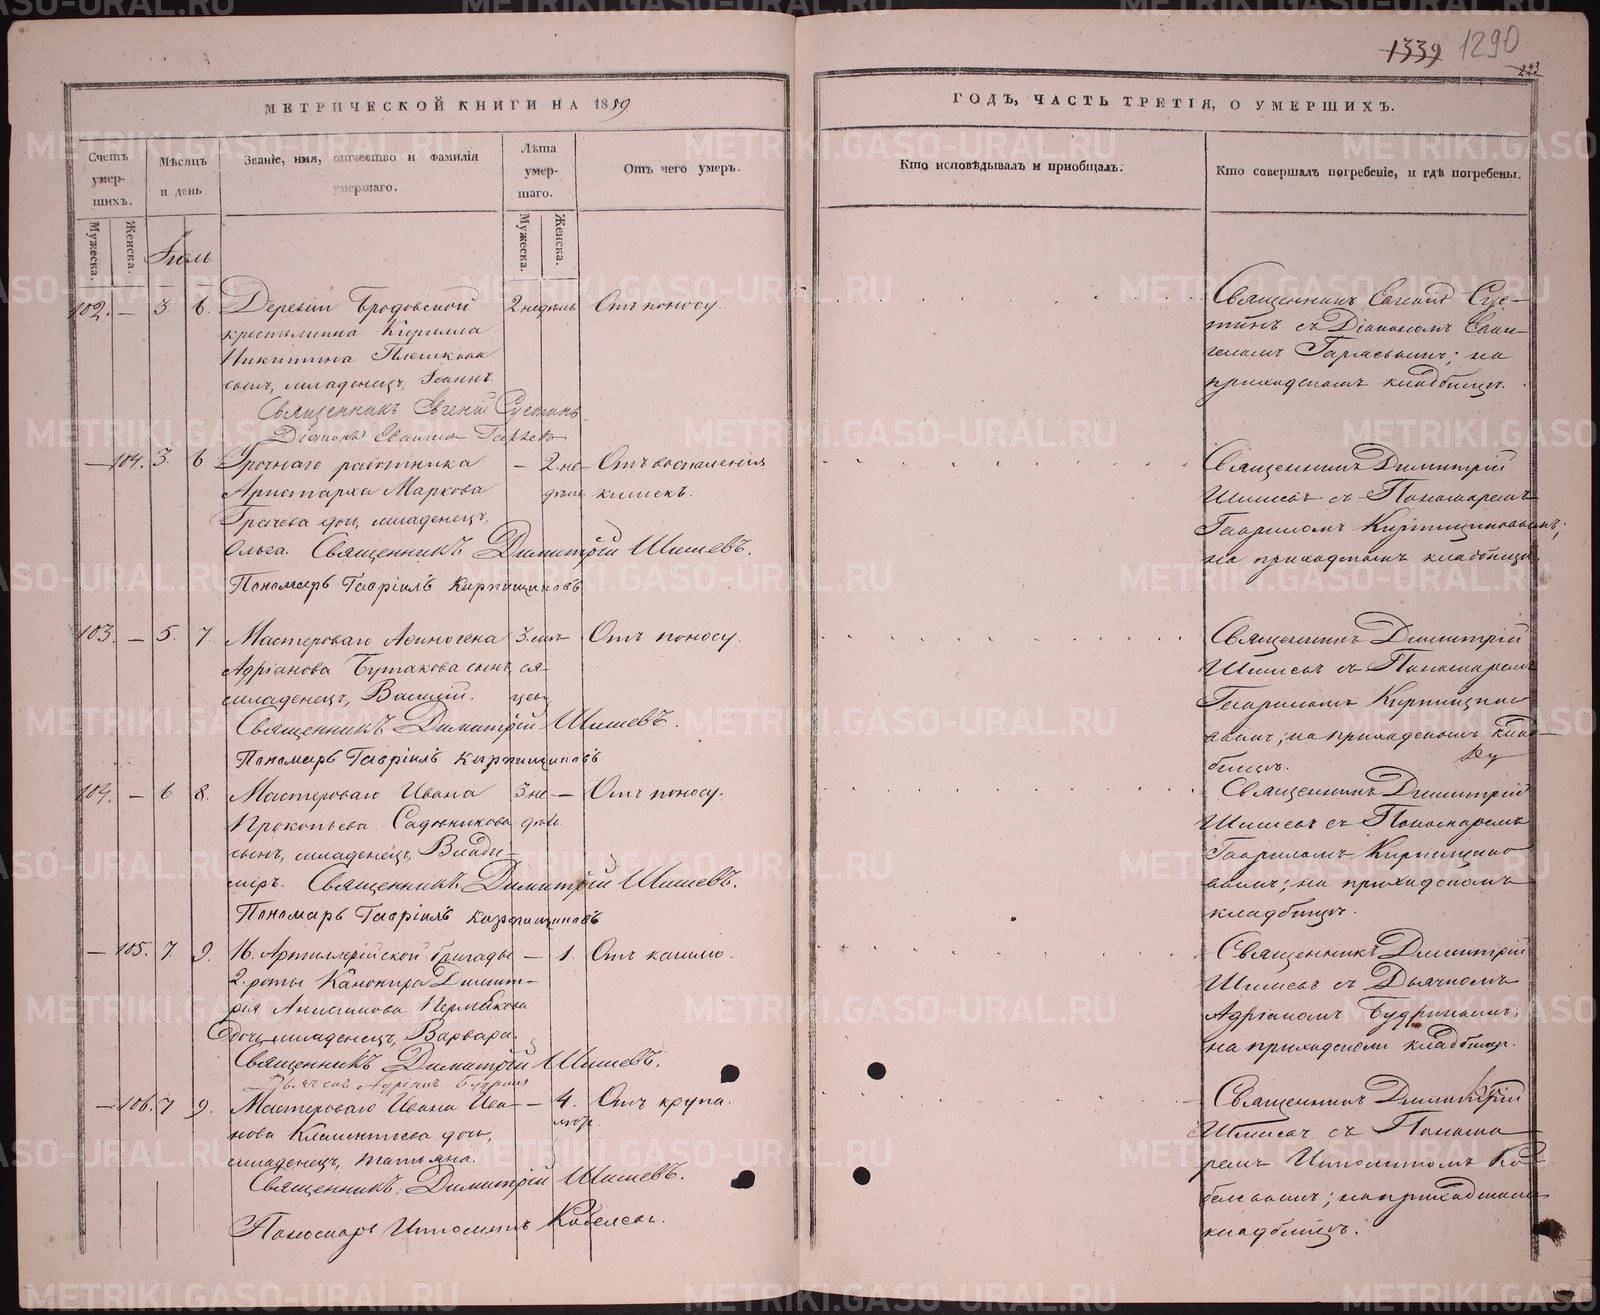 1339 1290
223
МЕТРИЧЕСКОЙ КНИГИ НА 1859
ГОДЪ, ЧАСТЬ ТРЕТІЯ, О УМЕРШИХЪ.
Счетъ умер-шихъ.
Мѣсяцъ и день
Званіе, имя, отчество и фамилія умершаго.
Лѣта умер-шаго.
Отъ чего умеръ.
Кто исповѣдывалъ и пріобщалъ.
Кто совершалъ погребеніе, и гдѣ погребены.
Мужеска.
Женска.
Мужеска.
Женска.
Іюль
102. — 3. 6. Деревни Бродовской 2 недѣль Отъ поносу.
крестьянина Кирилла
Никитина Плешкова
сынъ, младенецъ, Іоаннъ.
Священникъ Евгеній Сустинъ
Діаконъ
Священникъ Евгеній Сус-
тинъ съ Діакономъ
на
приходскомъ кладбищѣ.
— 104. 3. 6. Урочнаго работника — 2. не- Отъ воспаленія
Аристарха Маркова дѣль кишекъ.
Грачева дочь, младенецъ,
Ольга. Священникъ Димитрій Шишевъ.
Пономарь Гавріилъ Кирпищиковъ
Священникъ Димитрій
Шишевъ съ Пономаремъ
Гавриломъ Кирпищиковымъ;
на приходскомъ кладбищѣ.
103. — 5. 7. Мастероваго Аѳиногена 3. мѣ- Отъ поносу.
Адріанова Бутакова сынъ, ся-
младенецъ, Василій. цевъ
Священникъ Димитрій Шишевъ.
Пономарь Гавріилъ Кирпищиковъ
Священникъ Димитрій
Шишевъ съ Пономаремъ
Гавриломъ Кирпищико-
вымъ; на приходскомъ клад-
бищѣ.
104. — 6 8. Мастероваго Ивана 3 не — Отъ поносу.
Прокопьева Садовникова дѣль.
сынъ, младенецъ, Влади-
міръ. Священникъ Димитрій Шишевъ.
Пономарь Гавріилъ Кирпищиковъ
Священникъ Димитрій
Шишевъ съ Пономаремъ
Гавриломъ Кирпищико-
вымъ; на приходскомъ
кладбищѣ.
— 105. 7. 9. 16. Артиллерійской бригады — 1. Отъ кашлю.
2. роты Канонира Димит-
рія Анисимова Пермякова
дочь, младенецъ, Варвара.
Священникъ Димитрій Шишевъ.
Дьячекъ Адріанъ Будринъ
Священникъ Димитрій
Шишевъ съ Дьячкомъ
Адріаномъ Будринымъ;
на приходскомъ кладбищѣ.
— 106. 7 9. Мастероваго Ивана Ива- — 4. Отъ крупа.
нова Клементьева дочь,
младенецъ, Татьяна.
Священникъ Димитрій Шишевъ.
Пономарь Ипполитъ Кобелевъ.
Священникъ Димитрій
Шишевъ съ Понома-
ремъ Ипполитомъ Ко-
белевымъ; на приходскомъ
кладбищѣ.